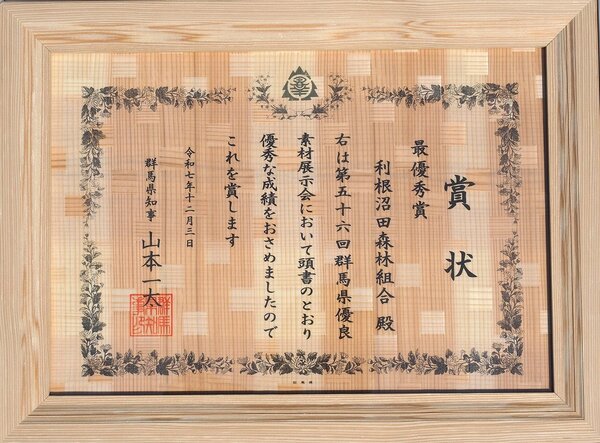 賞状
最優秀賞
利根沼田森林組合 殿
右は第五十六回群馬県優良
素材展示会において頭書のとおり
優秀な成績をおさめましたので
これを賞します
令和七年十二月三日
群馬県知事 山本一太